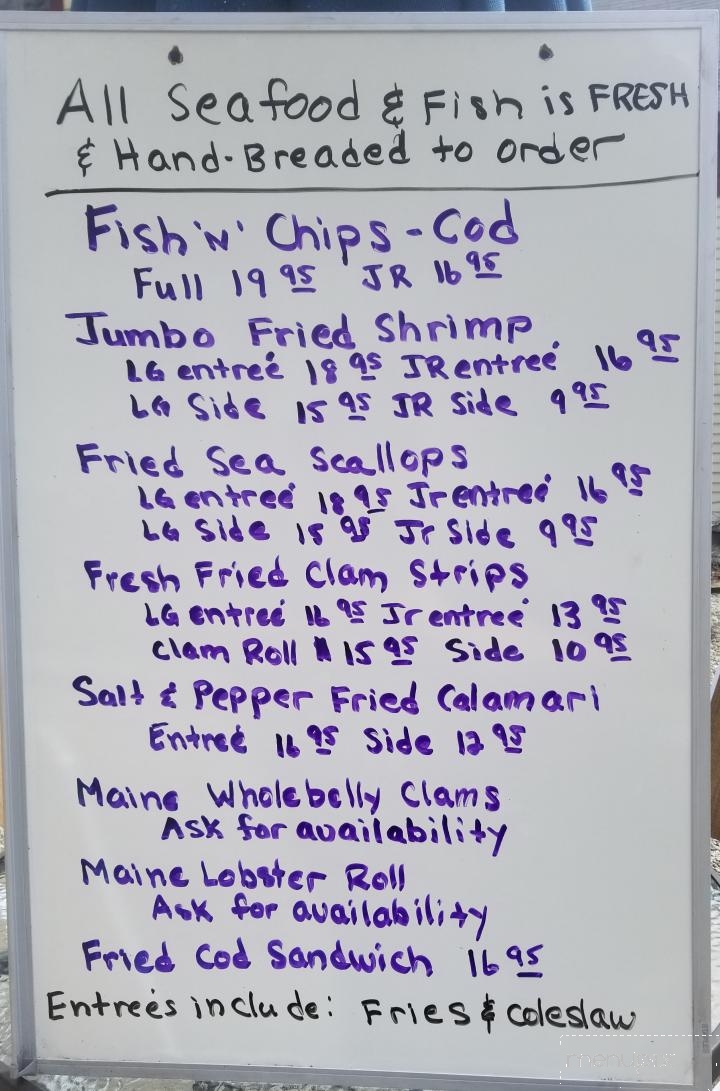 All Seafood & Fish is FRESH
& Hand-Breaded to order
Fish 'N' Chips - Cod
Full 19 95 JR 16 95
Jumbo Fried Shrimp
LG entreé 18 95 JR entreé 16 95
LG Side 15 95 JR Side 9 95
Fried Sea Scallops
LG entreé 18 95 Jr entreé 16 95
LG Side 15 95 Jr Side 9 95
Fresh Fried Clam Strips
LG entreé 16 95 Jr entreé 13 95
Clam Roll 15 95 Side 10 95
Salt & Pepper Fried Calamari
Entreé 16 95 Side 12 95
Maine Wholebelly Clams
Ask for availability
Maine Lobster Roll
Ask for availability
Fried Cod Sandwich 16 95
Entreés include: Fries & coleslaw